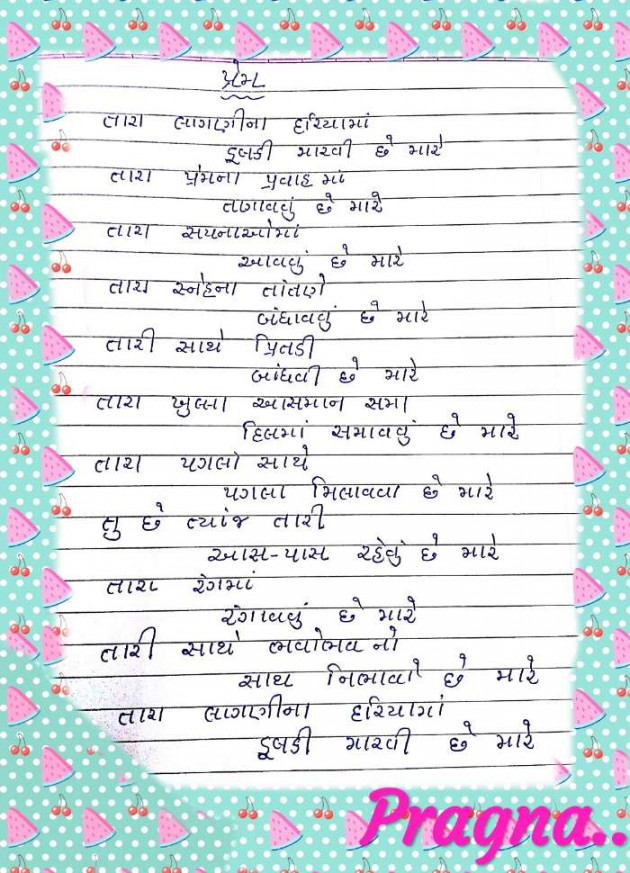 પ્રેમ
તારા લાગણીના દરિયામાં
ડૂબકી મારવી છે મારે
તારા પ્રેમના પ્રવાહ માં
તણાવવું છે મારે
તારા સપનાઓમાં
આવવું છે મારે
તારા સ્નેહના તાંતણે
બંધાવવું છે મારે
તારી સાથે પ્રિતડી
બાંધવી છે મારે
તારા ખુલ્લા આસમાન સમા
દિલમાં સમાવવું છે મારે
તારા પગલા સાથે
પગલા મિલાવવા છે મારે
તુ છે ત્યાંજ તારી
આસ-પાસ રહેવું છે મારે
તારા રંગમાં
રંગાવવું છે મારે
તારી સાથે ભવોભવ નો
સાથ નિભાવો છે મારે
તારા લાગણીના દરિયામાં
ડૂબકી મારવી છે મારે
Pragna..